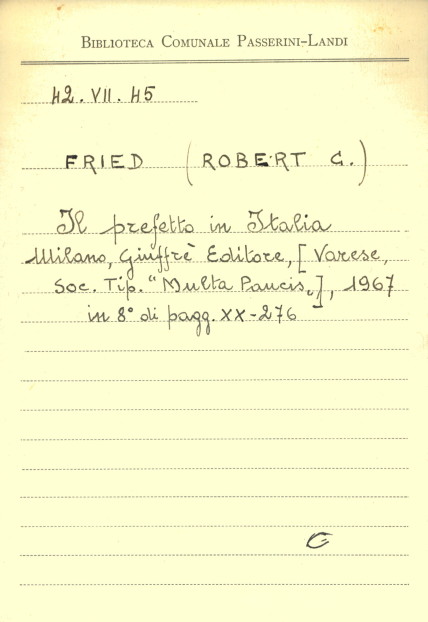 BIBLIOTECA COMUNALE PASSERINI-LANDI
42. VII. 45
FRIED (ROBERT C.)
Il prefetto in Italia
Milano, Giuffrè Editore, [Varese,
Soc. Tip. "Multa Paucis„], 1967
in 8° di pagg. XX-276